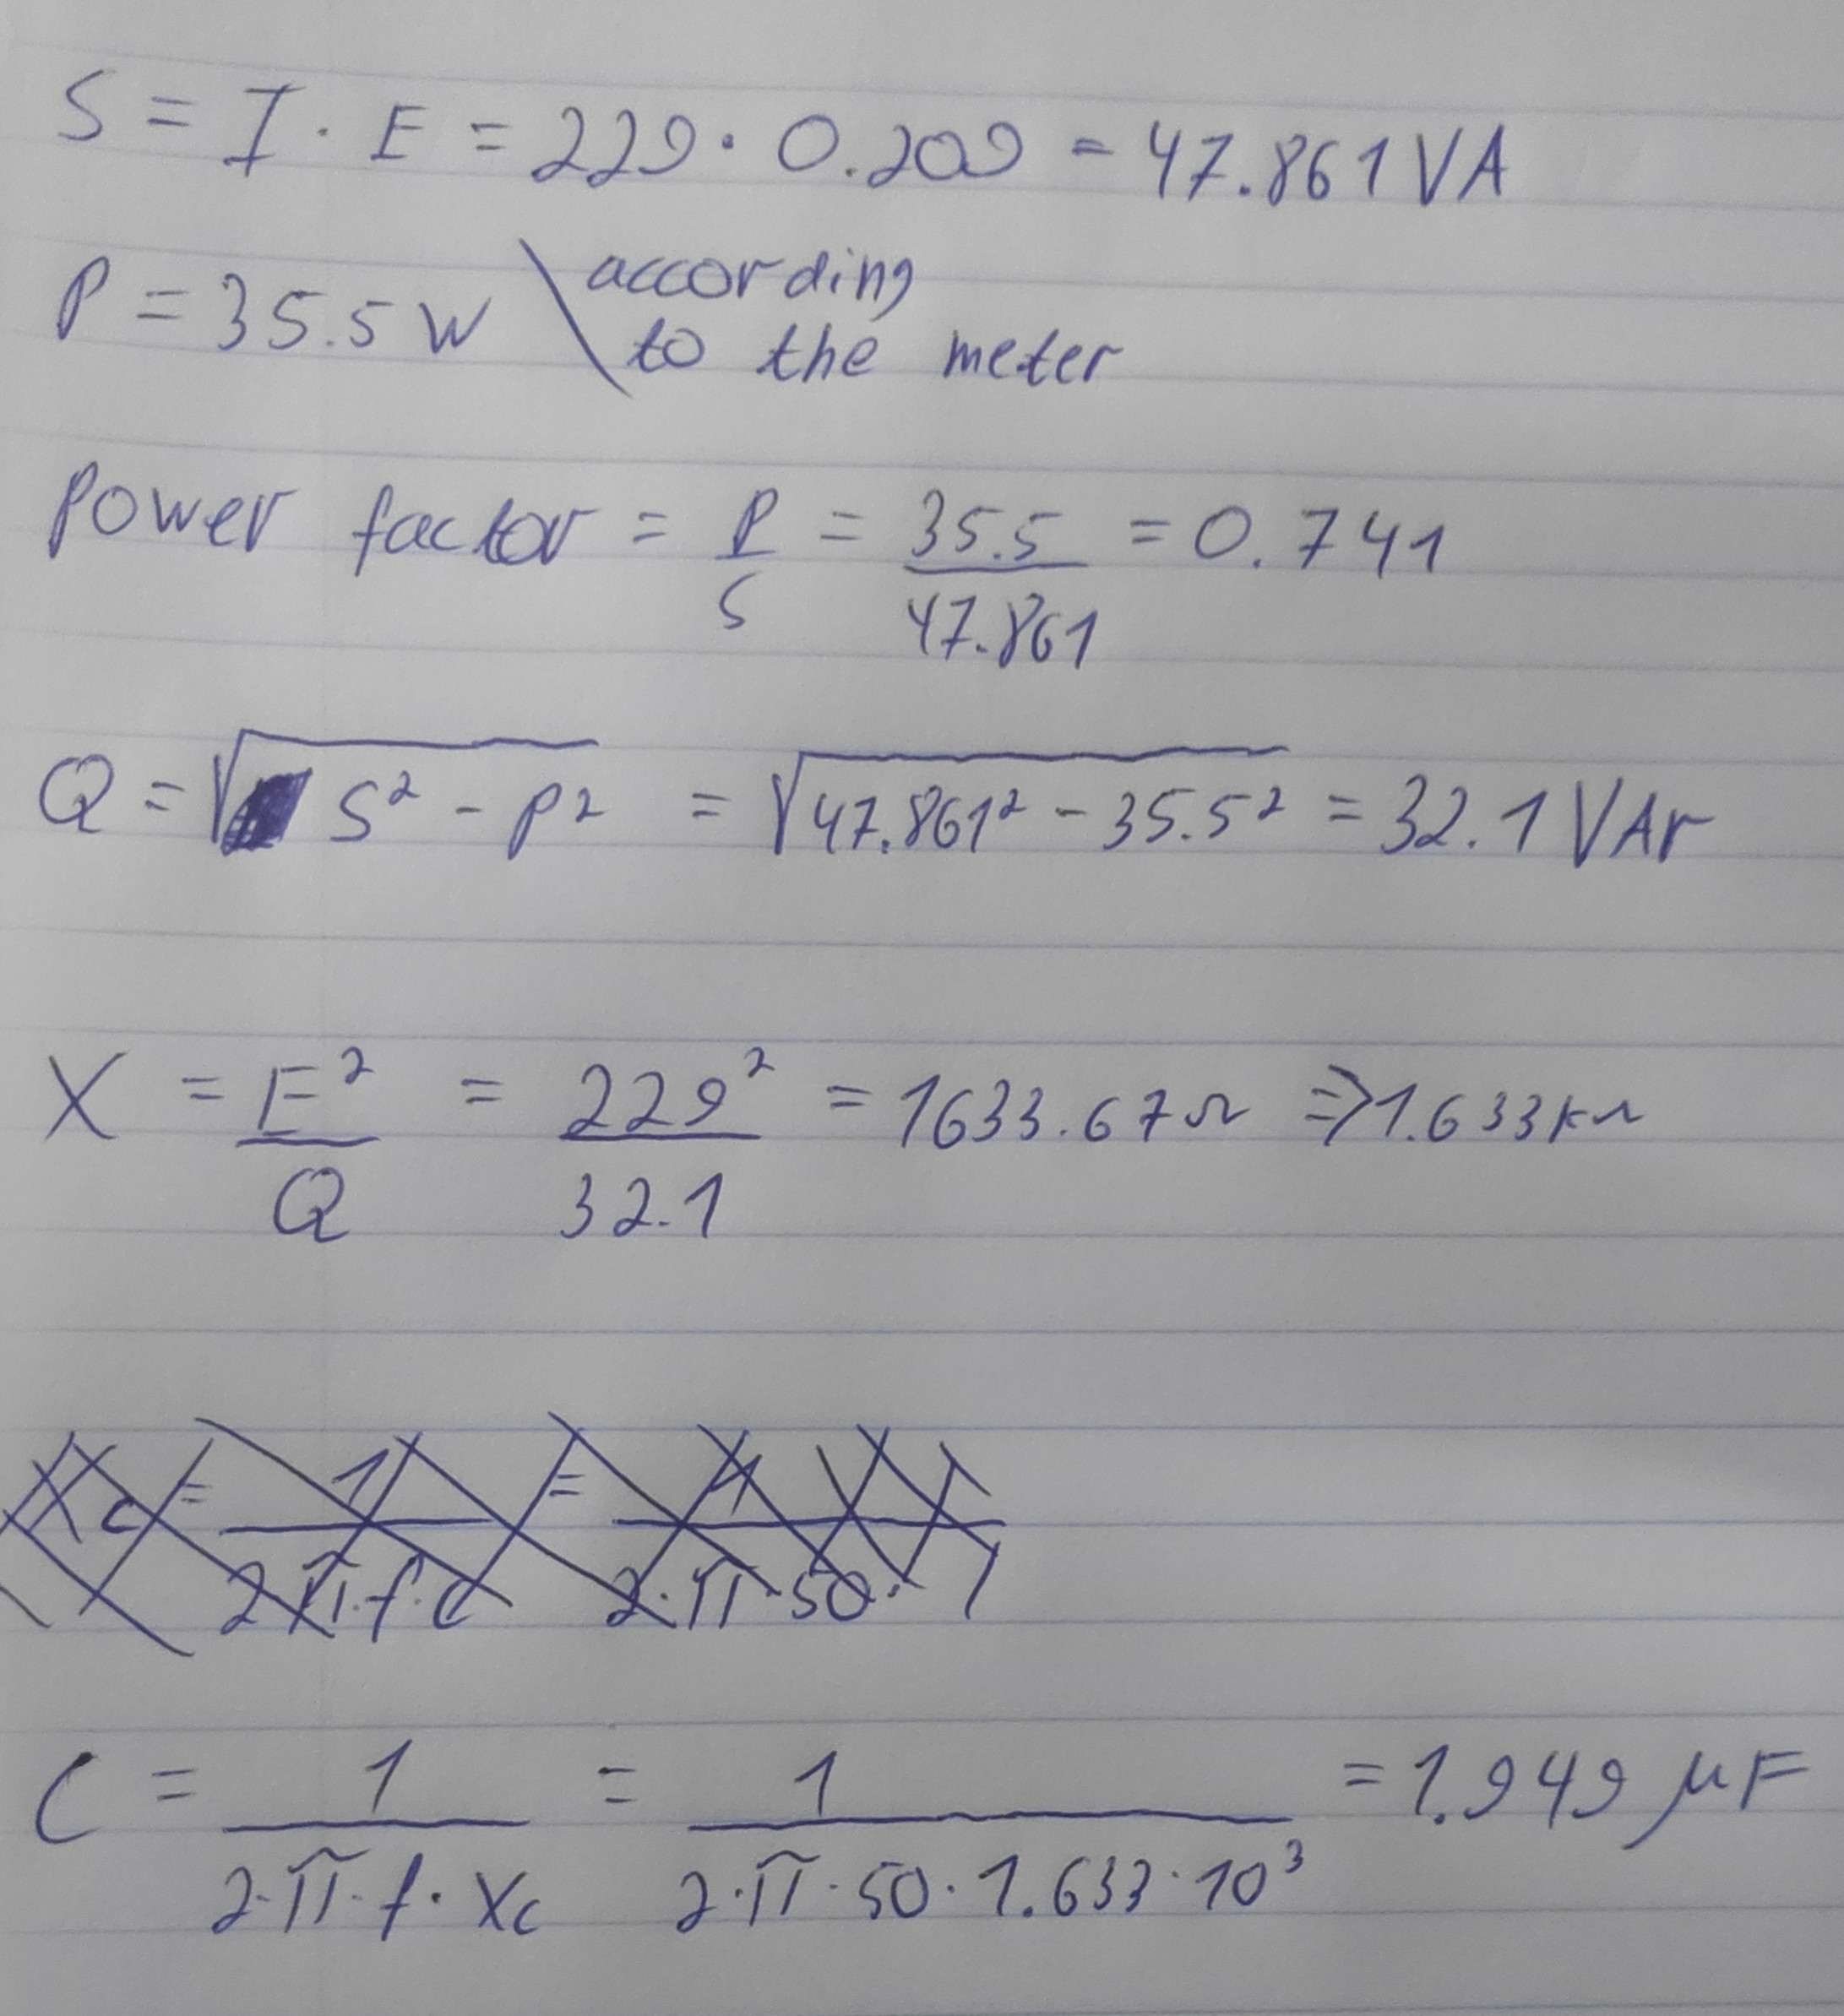 S = I · E = 229 · 0.209 = 47.861 VA
P = 35.5 W \ according
to the meter
Power factor = P/S = 35.5/47.861 = 0.741
Q = √(S² - P²) = √(47.861² - 35.5²) = 32.1 VAr
X = E²/Q = 229²/32.1 = 1633.67 Ω ⇒ 1.633 kΩ
Xc = 1/(2·π·f·C) = 1/(2·π·50·
C = 1/(2·π·f·Xc) = 1/(2·π·50·1.633·10³) = 1.949 μF